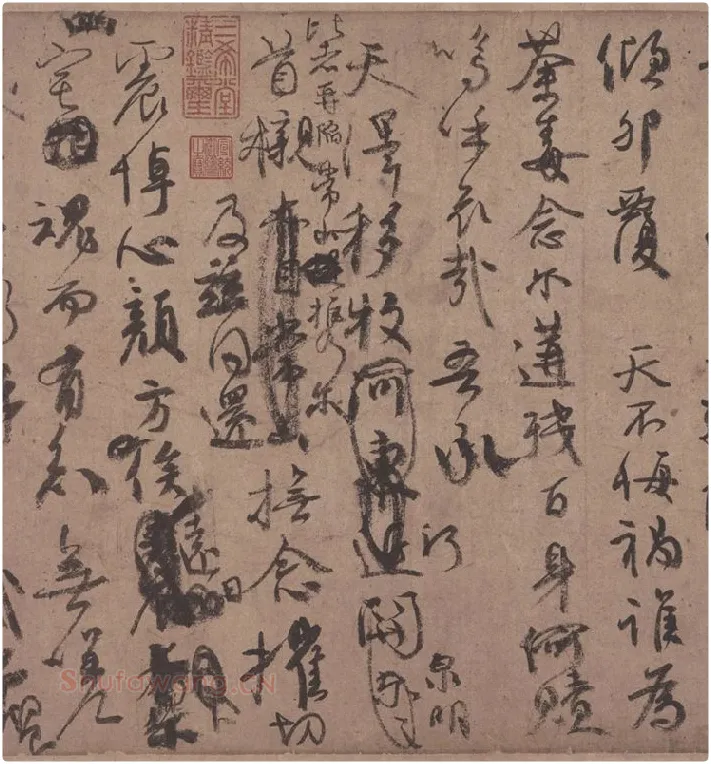 傾卵覆 天不悔禍誰為
荼毒念爾遘殘百身何贖
嗚呼哀哉吾承
天澤移牧河東近關
泉明
比者再陷常山携爾
首櫬亦自常山撫念摧切
及茲同還
三希堂精鑑璽
震悼心顏方俟
遠日
宅魂而有知無嗟
Shufawang.CN